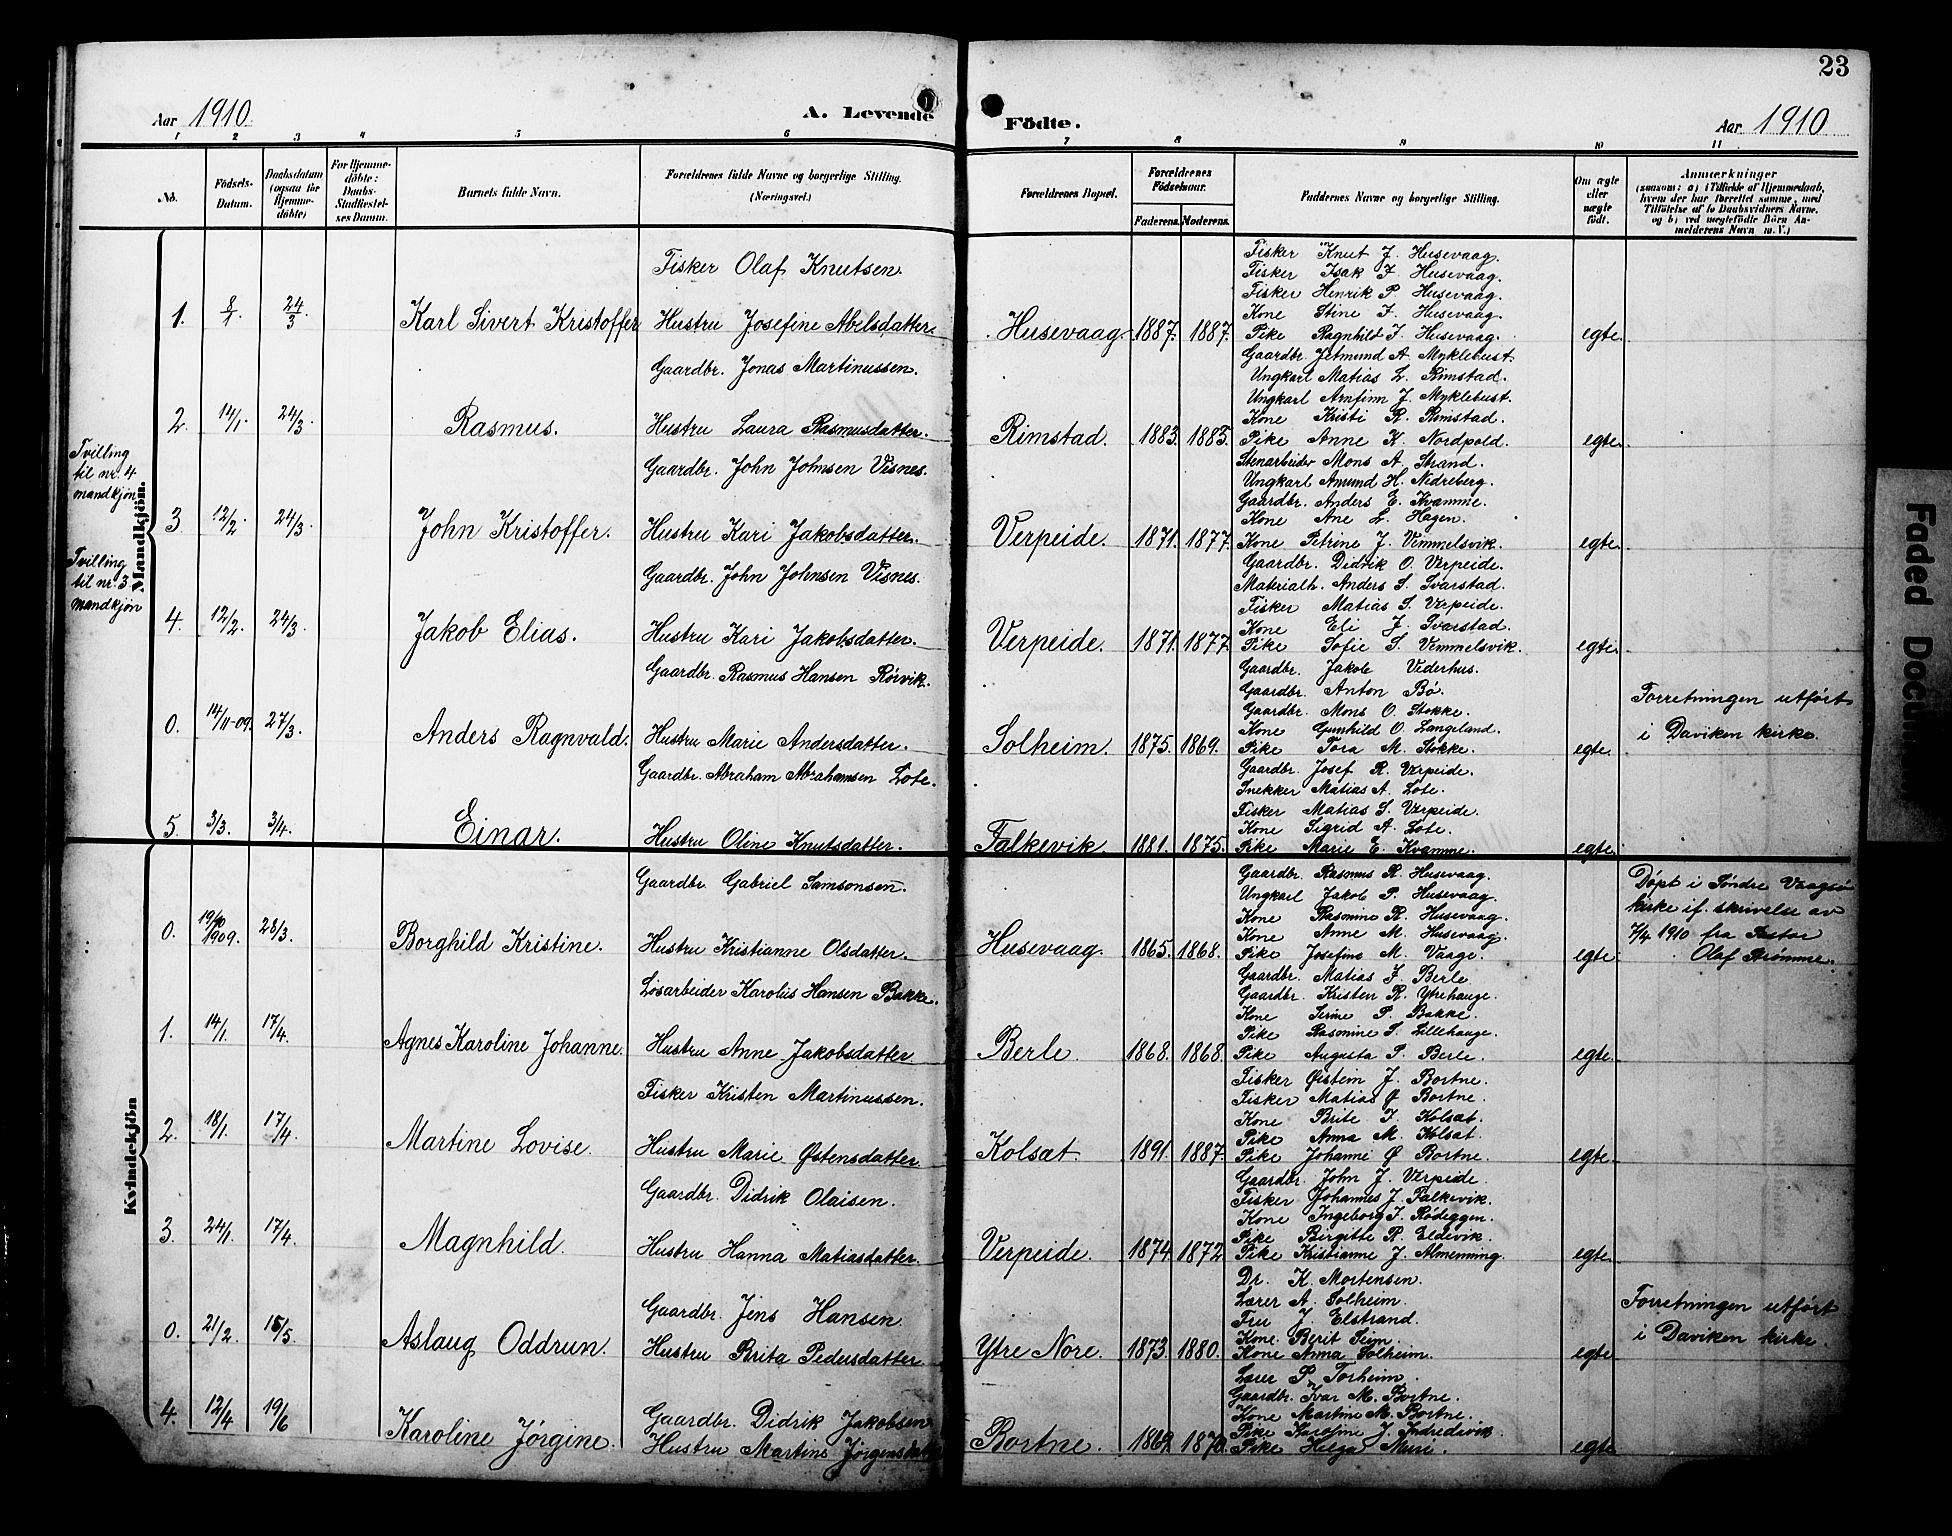 23
Aar 1910. A. Levende Födte. Aar 1910
1 2 3 4 5 6 7 8 9 10 11
No. Födsels-Datum. Daabsdatum (ogsaa for Hjemme-döbte) For Hjemme-döbte: Daabs-Stadfæstel-ses Datum. Barnets fulde Navn. Forældrenes fulde Navne og borgerlige Stilling. (Næringsvei.) Forældrenes Bopæl. Forældrenes Födselsaar. Faderens. Moderens. Faddernes Navne og borgerlige Stilling. Om ægte eller uægte födt. Anmærkninger
(saasom: a) i Tilfælde af Hjemmedaab,
hvem der har forrettet samme, med
Tilföielse af to Daabsvidners Navne,
og b) ved uægtefödte Börn An-
melderens Navn m. V.)
Mandkjön.
Fisker Olaf Knutsen.
1. 8/1. 24/3. Karl Sivert Kristoffer Hustru Josefine Abelsdatter. Husevaag. 1887. 1887. egte.
Fisker Knut J. Husevaag.
Fisker Isak I. Husevaag.
Fisker Henrik P. Husevaag.
Kone Stine I. Husevaag.
Pike Ragnhild I. Husevaag.
Gaardbr. Jonas Martinussen.
2. 14/1. 24/3. Rasmus. Hustru Laura Rasmusdatter. Rimstad. 1883. 1885. egte.
Gaardbr. Jetmund A. Myklebust.
Ungkarl Matias L. Rimstad.
Ungkarl Arnfinn J. Myklebust.
Kone Kristi R. Rimstad.
Pike Anne K. Nordpold.
Tvilling
til nr. 4
mandkjön
Gaardbr. John Johnsen Visnes.
3. 12/2. 24/3. John Kristoffer. Hustru Kari Jakobsdatter. Verpeide. 1871. 1877. egte.
Stenarbeider Mons A. Strand.
Ungkarl Amund H. Nedreberg.
Gaardbr. Anders E. Kvamme.
Kone Ane L. Hagen.
Kone Petrine J. Vemmelsvik.
Tvilling
til nr. 3
mandkjön
Gaardbr. John Johnsen Visnes.
4. 12/2. 24/3. Jakob Elias. Hustru Kari Jakobsdatter. Verpeide. 1871. 1877. egte.
Gaardbr. Didrik O. Verpeide.
Materialh. Anders S. Svarstad.
Fisker Matias S. Verpeide.
Kone Eli J. Svarstad.
Pike Sofie S. Vemmelsvik.
Gaardbr. Rasmus Hansen Rörvik.
0. 14/11-09. 27/3. Anders Ragnvald. Hustru Marie Andersdatter. Solheim. 1875. 1869. egte.
Gaardbr. Jakob Viderhus.
Gaardbr. Anton Bö.
Gaardbr. Mons O. Stokke.
Kone Gunhild O. Langeland.
Pike Tora M. Stokke.
Forretningen utfört
i Daviken kirke.
Gaardbr. Abraham Abrahamsen Lote.
5. 3/3. 3/4. Einar. Hustru Oline Knutsdatter. Falkevik. 1881. 1875. egte.
Gaardbr. Josef R. Verpeide.
Snekker Matias A. Lote.
Fisker Matias S. Verpeide.
Kone Sigrid A. Lote.
Pike Marie E. Kvamme.
Kvindekjön
Gaardbr. Gabriel Samsonsen.
0. 19/10 1909. 28/3. Borghild Kristine. Hustru Kristianne Olsdatter. Husevaag. 1865. 1868. egte.
Gaardbr. Rasmus R. Husevaag.
Ungkarl Jakob P. Husevaag.
Kone Rasmine R. Husevaag.
Kone Anne M. Husevaag.
Pike Josefine M. Vaage.
Döpt i Söndre Vaagsö
kirke if. skrivelse av
7/4 1910 fra Pastor
Olaf Strömme.
Lösarbeider Karolus Hansen Bakke.
1. 14/1. 17/4. Agnes Karoline Johanne. Hustru Anne Jakobsdatter. Berle. 1868. 1868. egte.
Gaardbr. Matias J. Berle.
Gaardbr. Kristen R. Ytrehauge.
Kone Serine P. Bakke.
Pike Rasmine S. Lillehauge.
Pike Augusta P. Berle.
Fisker Kristen Martinussen.
2. 18/1. 17/4. Martine Lovise. Hustru Marie Østensdatter. Kolsat. 1891. 1887. egte.
Fisker Øistein J. Bortne.
Fisker Matias Ø. Bortne.
Kone Brite I. Kolsat.
Pike Anna M. Kolsat.
Pike Johanne Ø. Bortne.
Gaardbr. Didrik Olaisen.
3. 24/1. 17/4. Magnhild. Hustru Hanna Matiasdatter. Verpeide. 1874. 1872. egte.
Gaardbr. John J. Verpeide.
Fisker Johannes J. Falkevik.
Kone Ingeborg I. Rödeggen.
Pike Birgitte R. Eldevik.
Pike Kristianne J. Almenning.
Gaardbr. Jens Hansen.
0. 21/2. 15/5. Aslaug Oddrun. Hustru Brita Pedersdatter. Ytre Nore. 1873. 1880. egte.
Dr. K. Mortensen.
Lærer A. Solheim.
Fru J. Elstrand.
Kone Berit Seim.
Kone Anna Solheim.
Forretningen utfört
i Daviken kirke
Gaardbr. Didrik Jakobsen
4. 12/4. 19/6. Karoline Jørgine. Hustru Martine Jørgensdatter Bortne. 1869. 1870. egte.
Lærer P. Torheim.
Gaardbr. Ivar M. Bortne.
Kone Martine M. Bortne.
Pike Karoline J. Indredevik.
Pike Helga Muri.
Faded Docum